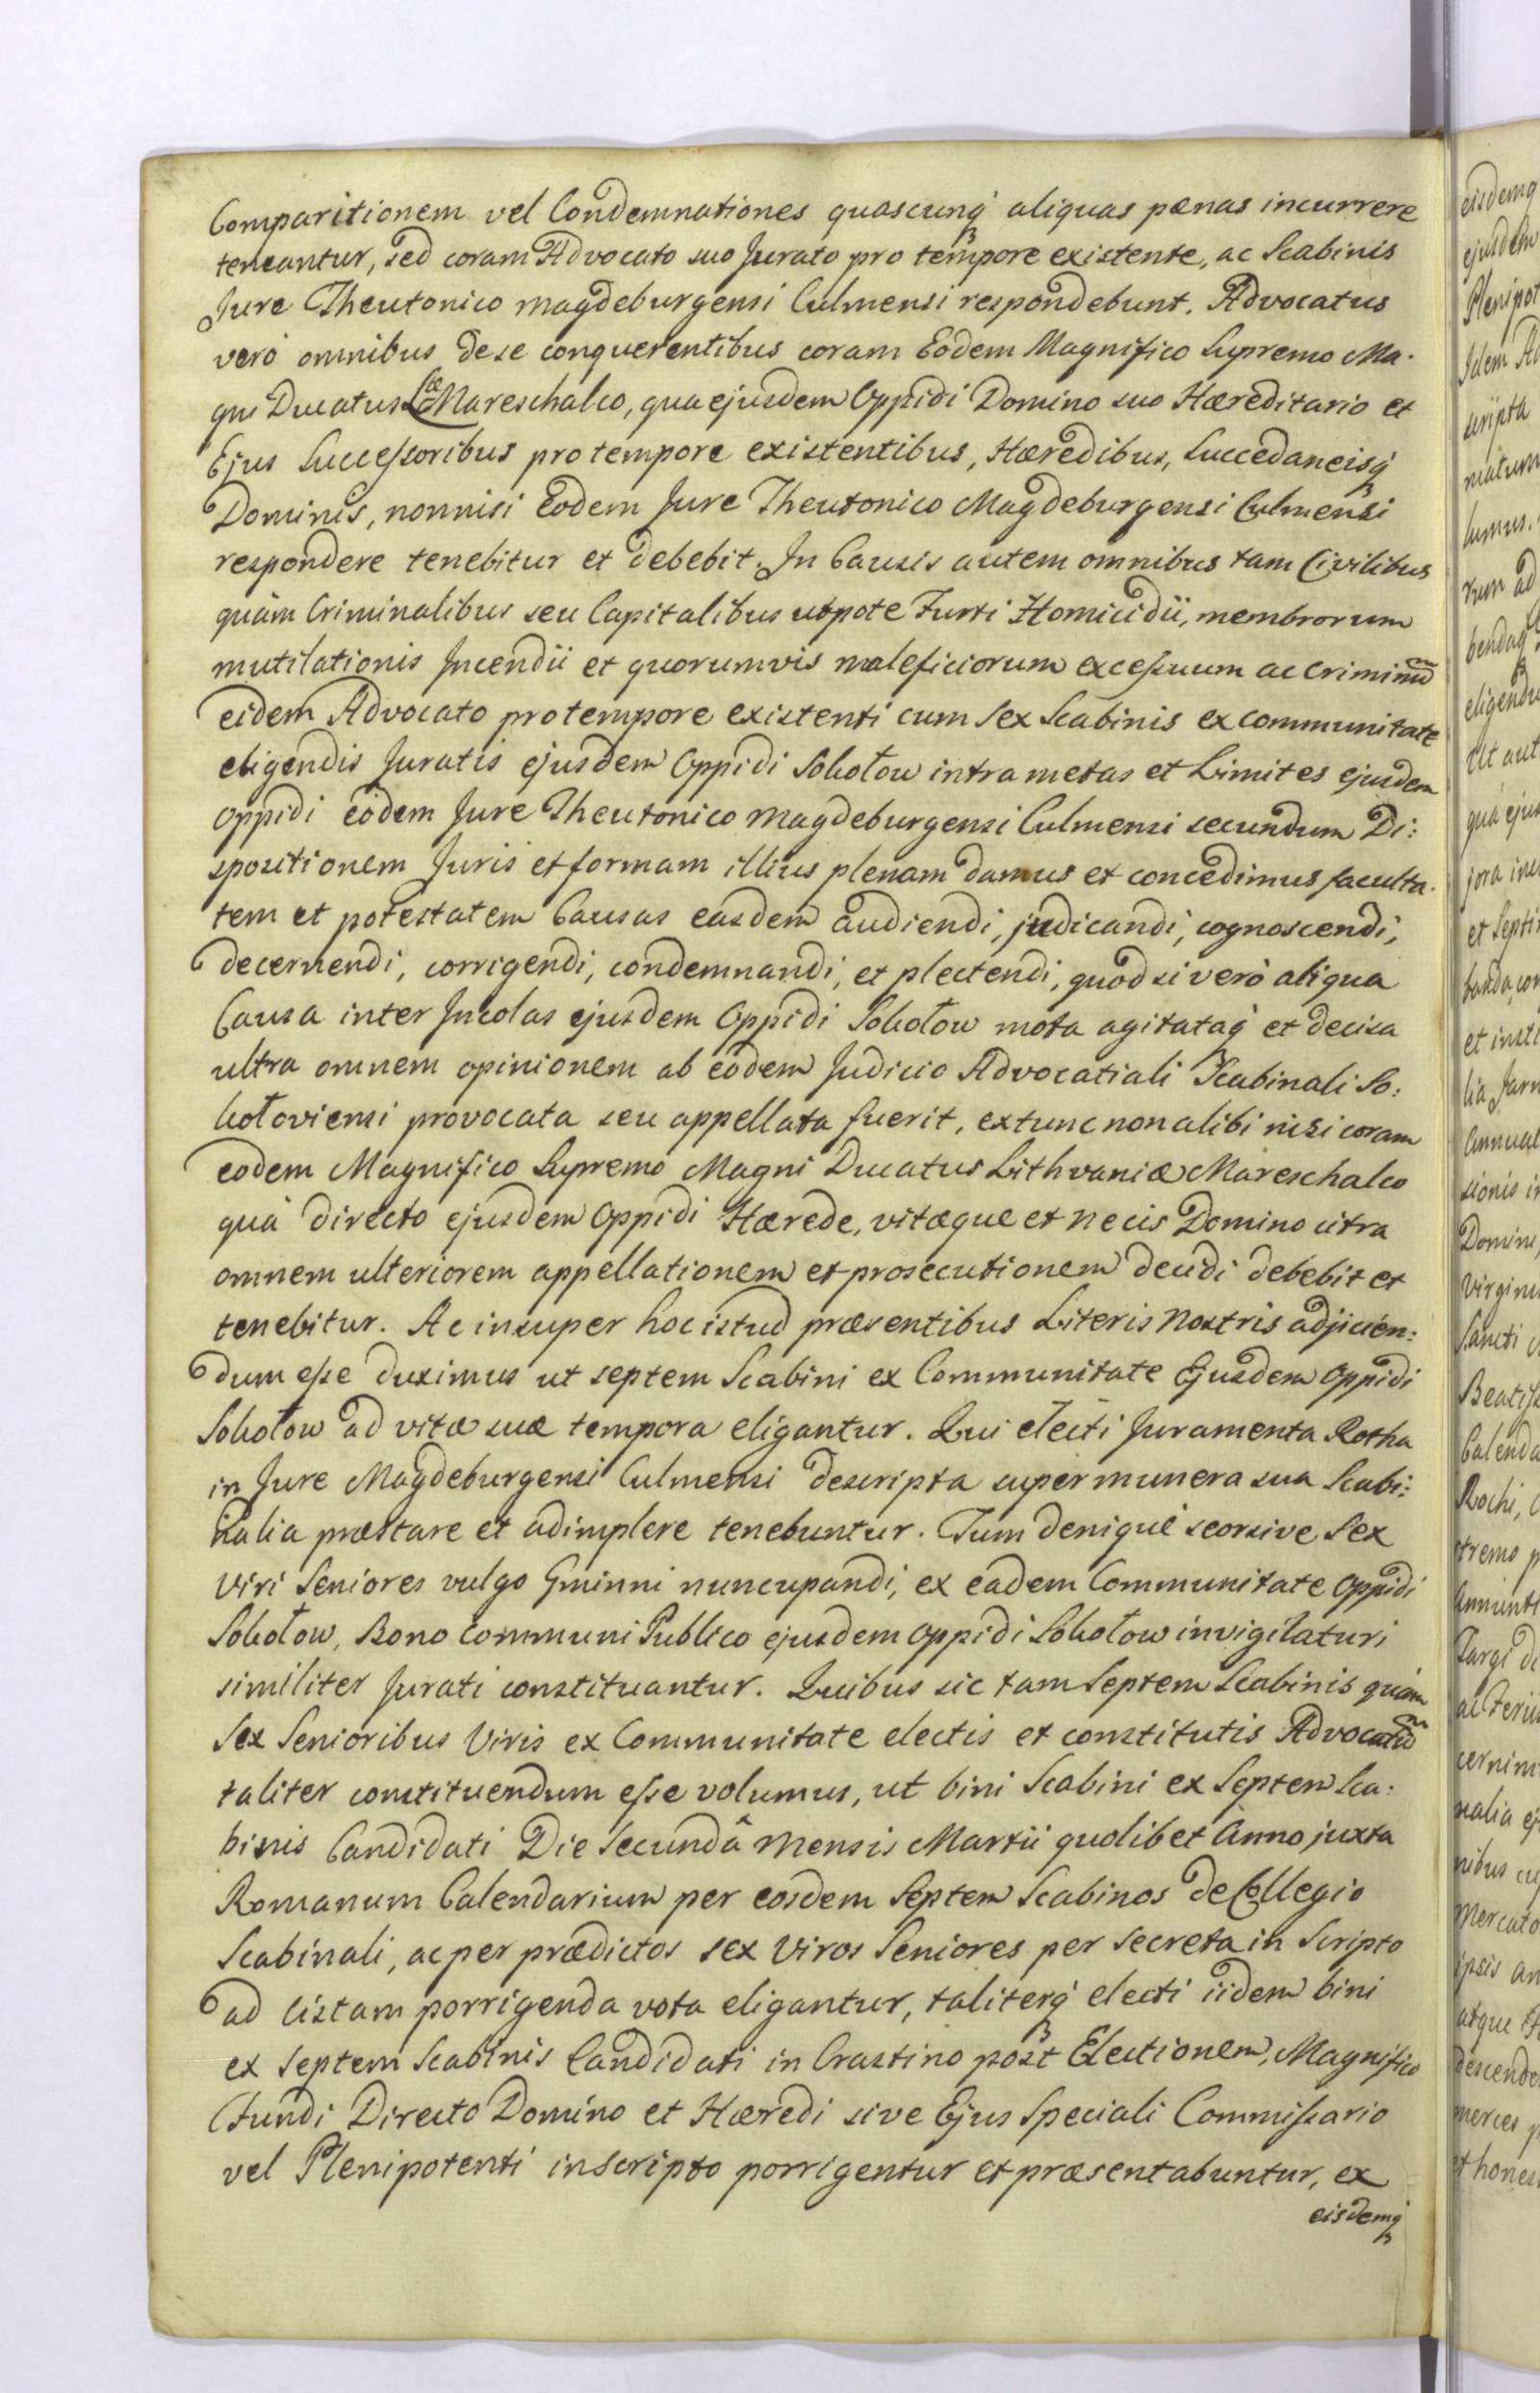 Comparitionem vel Condemnationes quascunq́ aliquas pænas incurrere
teneantur, sed coram Advocato suo Jurato pro tempore existente, ac Scabinis
Jure Theutonico Magdeburgensi Culmensi respondebunt. Advocatus
verò omnibus de se conquerentibus coram Eodem Magnifico Supremo Ma-
gni Ducatus Lœ Mareschalco, qua ejusdem Oppidi Domino suo Hæreditario et
Ejus Successoribus pro tempore existentibus, Hæredibus, Succedaneisq́
Dominis, nonnisi Eodem Jure Theutonico Magdeburgensi Culmensi
respondere tenebitur et debebit. In Causis autem omnibus tam Civilibus
quàm Criminalibus seu Capitalibus utpote Furti Homicidii, membrorum
mutilationis Incendii et quorumvis maleficiorum excessuum ac criminũ
eidem Advocato pro tempore existenti cum sex Scabinis ex communitate
eligendis Juratis ejusdem Oppidi Sokołow intra metas et Limites ejusdem
Oppidi eodem Jure Theutonico Magdeburgensi Culmensi secundum Di:
spositionem Juris et formam illius plenam damus et concedimus faculta-
tem et potestatem Causas easdem audiendi, judicandi, cognoscendi,
decernendi, corrigendi, condemnandi, et plectendi, quod si verò aliqua
Causa inter Incolas ejusdem Oppidi Sokołow mota agitataq́ et decisa
ultra omnem opinionem ab eodem Judicio Advocatiali Scabinali So:
kołoviensi provocata seu appellata fuerit, extunc non alibi nisi coram
eodem Magnifico Supremo Magni Ducatus Lithvaniæ Mareschalco
quà directo ejusdem Oppidi Hærede, vitæque et necis Domino citra
omnem ulteriorem appellationem et prosecutionem decidi debebit et
tenebitur. Ac insuper hoc istud præsentibus Literis Nostris adjicien:
dum esse duximus ut septem Scabini ex Communitate Ejusdem Oppidi
Sokołow ad vitæ suæ tempora eligantur. Qui electi Juramenta Rotha
in Jure Magdeburgensi Culmensi descripta super munera sua Scabi:
nalia præstare et adimplere tenebuntur. Tum denique seorsive Sex
Viri Seniores vulgo Gminni nuncupandi, ex eadem Communitate Oppidi
Sokołow, Bono Communi Publico ejusdem Oppidi Sokołow invigilaturi
similiter Jurati constituantur. Quibus sic tam Septem Scabinis quàm
Sex Senioribus Viris ex Communitate electis et constitutis Advocatũ
taliter constituendum esse volumus, ut bini Scabini ex Septem Sca:
binis Candidati Die Secundâ Mensis Martii quolibet Anno juxta
Romanum Calendarium per eosdem Septem Scabinos de Collegio
Scabinali, ac per prædictos sex Viros Seniores per secreta in Scripto
ad Cistam porrigenda vota eligantur, taliterq́ electi iidem bini
ex Septem Scabinis Candidati in Crastino post Electionem, Magnifico
Fundi Directo Domino et Hæredi sive Ejus Speciali Commissario
vel Plenipotenti in Scripto porrigentur et præsentabuntur, ex
eisdemq́
eisdemq
ejusdem
Plenipot
Idem Ad
scripta
lumus.
rum ad
Ut aut
quà ejus
et Septi
et insti
Domini
Sancti
Calenda
Rochi,
tremo p
Targi
Mercato
ipsis an
atque
descende
merces p
et hones